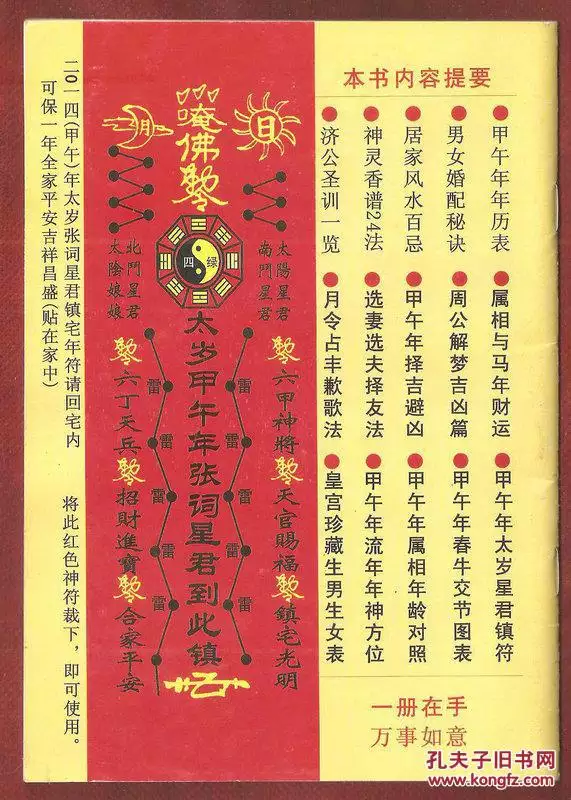 本书内容提要
甲午年年历表
属相与马年财运
甲午年太岁星君镇符
男女婚配秘诀
周公解梦吉凶篇
甲午年春牛交节图表
居家风水百忌
甲午年择吉避凶
甲午年属相年龄对照
神灵香谱24法
选妻选夫择友法
甲午年流年年神方位
济公圣训一览
月令占丰歉歌法
皇宫珍藏生男生女表
一册在手
万事如意
日
唵佛
月
太陽星君
南鬥星君
四绿
北鬥星君
太陰娘娘
六甲神將
天官賜福
鎮宅光明
雷
雷
雷
雷
雷
太岁甲午年张词星君到此镇
雷
雷
雷
雷
雷
六丁天兵
招財進寶
合家平安
二〇一四(甲午)年太岁张词星君镇宅年符请回宅内
可保一年全家平安吉祥昌盛(贴在家中)
将此红色神符裁下，即可使用。
孔夫子旧书网
www.kongfz.com